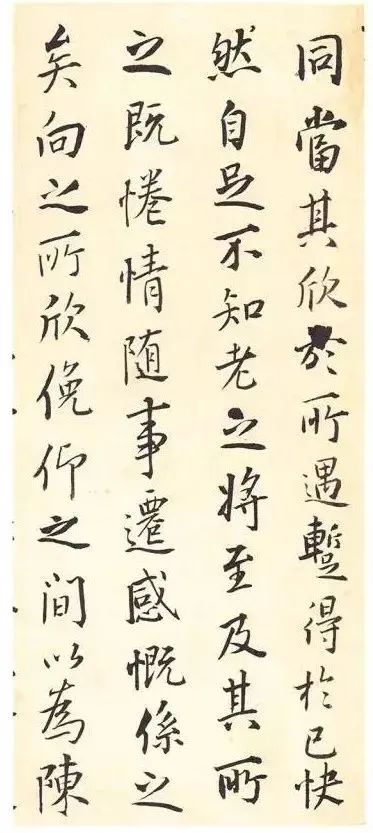 同當其欣於所遇暫得於己快
然自足不知老之將至及其所
之既惓情随事遷感慨係之
矣向之所欣俛仰之間以為陳